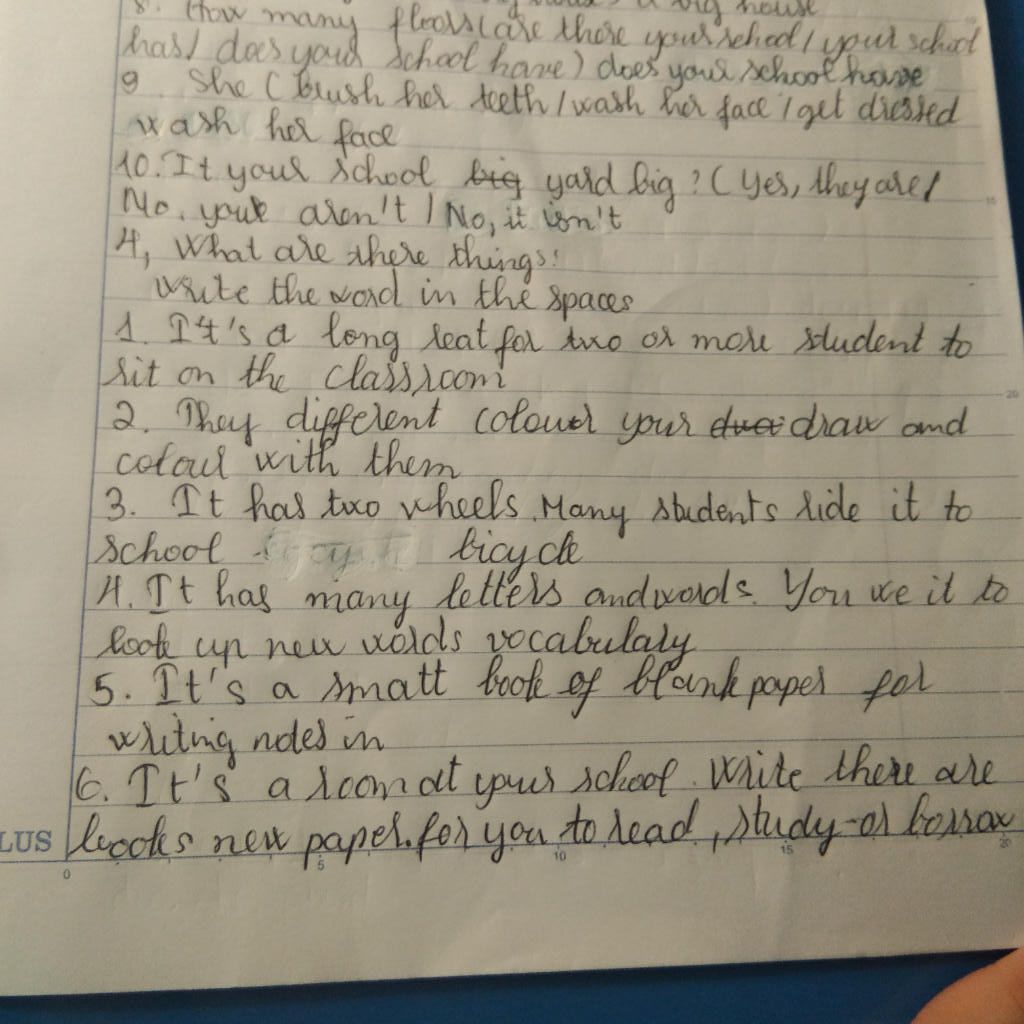 8. How many floors (are there your school / your school
has / does your school have) does your school have
9. She (brush her teeth / wash her face / get dressed
wash her face
10. It your school big yard big? (Yes, they are /
No, you aren't / No, it isn't
4, What are there things:
write the word in the spaces
1. It's a long seat for two or more student to
sit on the classroom
2. They different colour your draw and
colour with them
3. It has two wheels. Many students ride it to
school bicycle
4. It has many letters and words. You use it to
look up new words vocabulary
5. It's a small book of blank paper for
writing notes in
6. It's a room at your school. Write there are
books new paper. for you to read, study or borrow
LUS
0 5 10 15 20